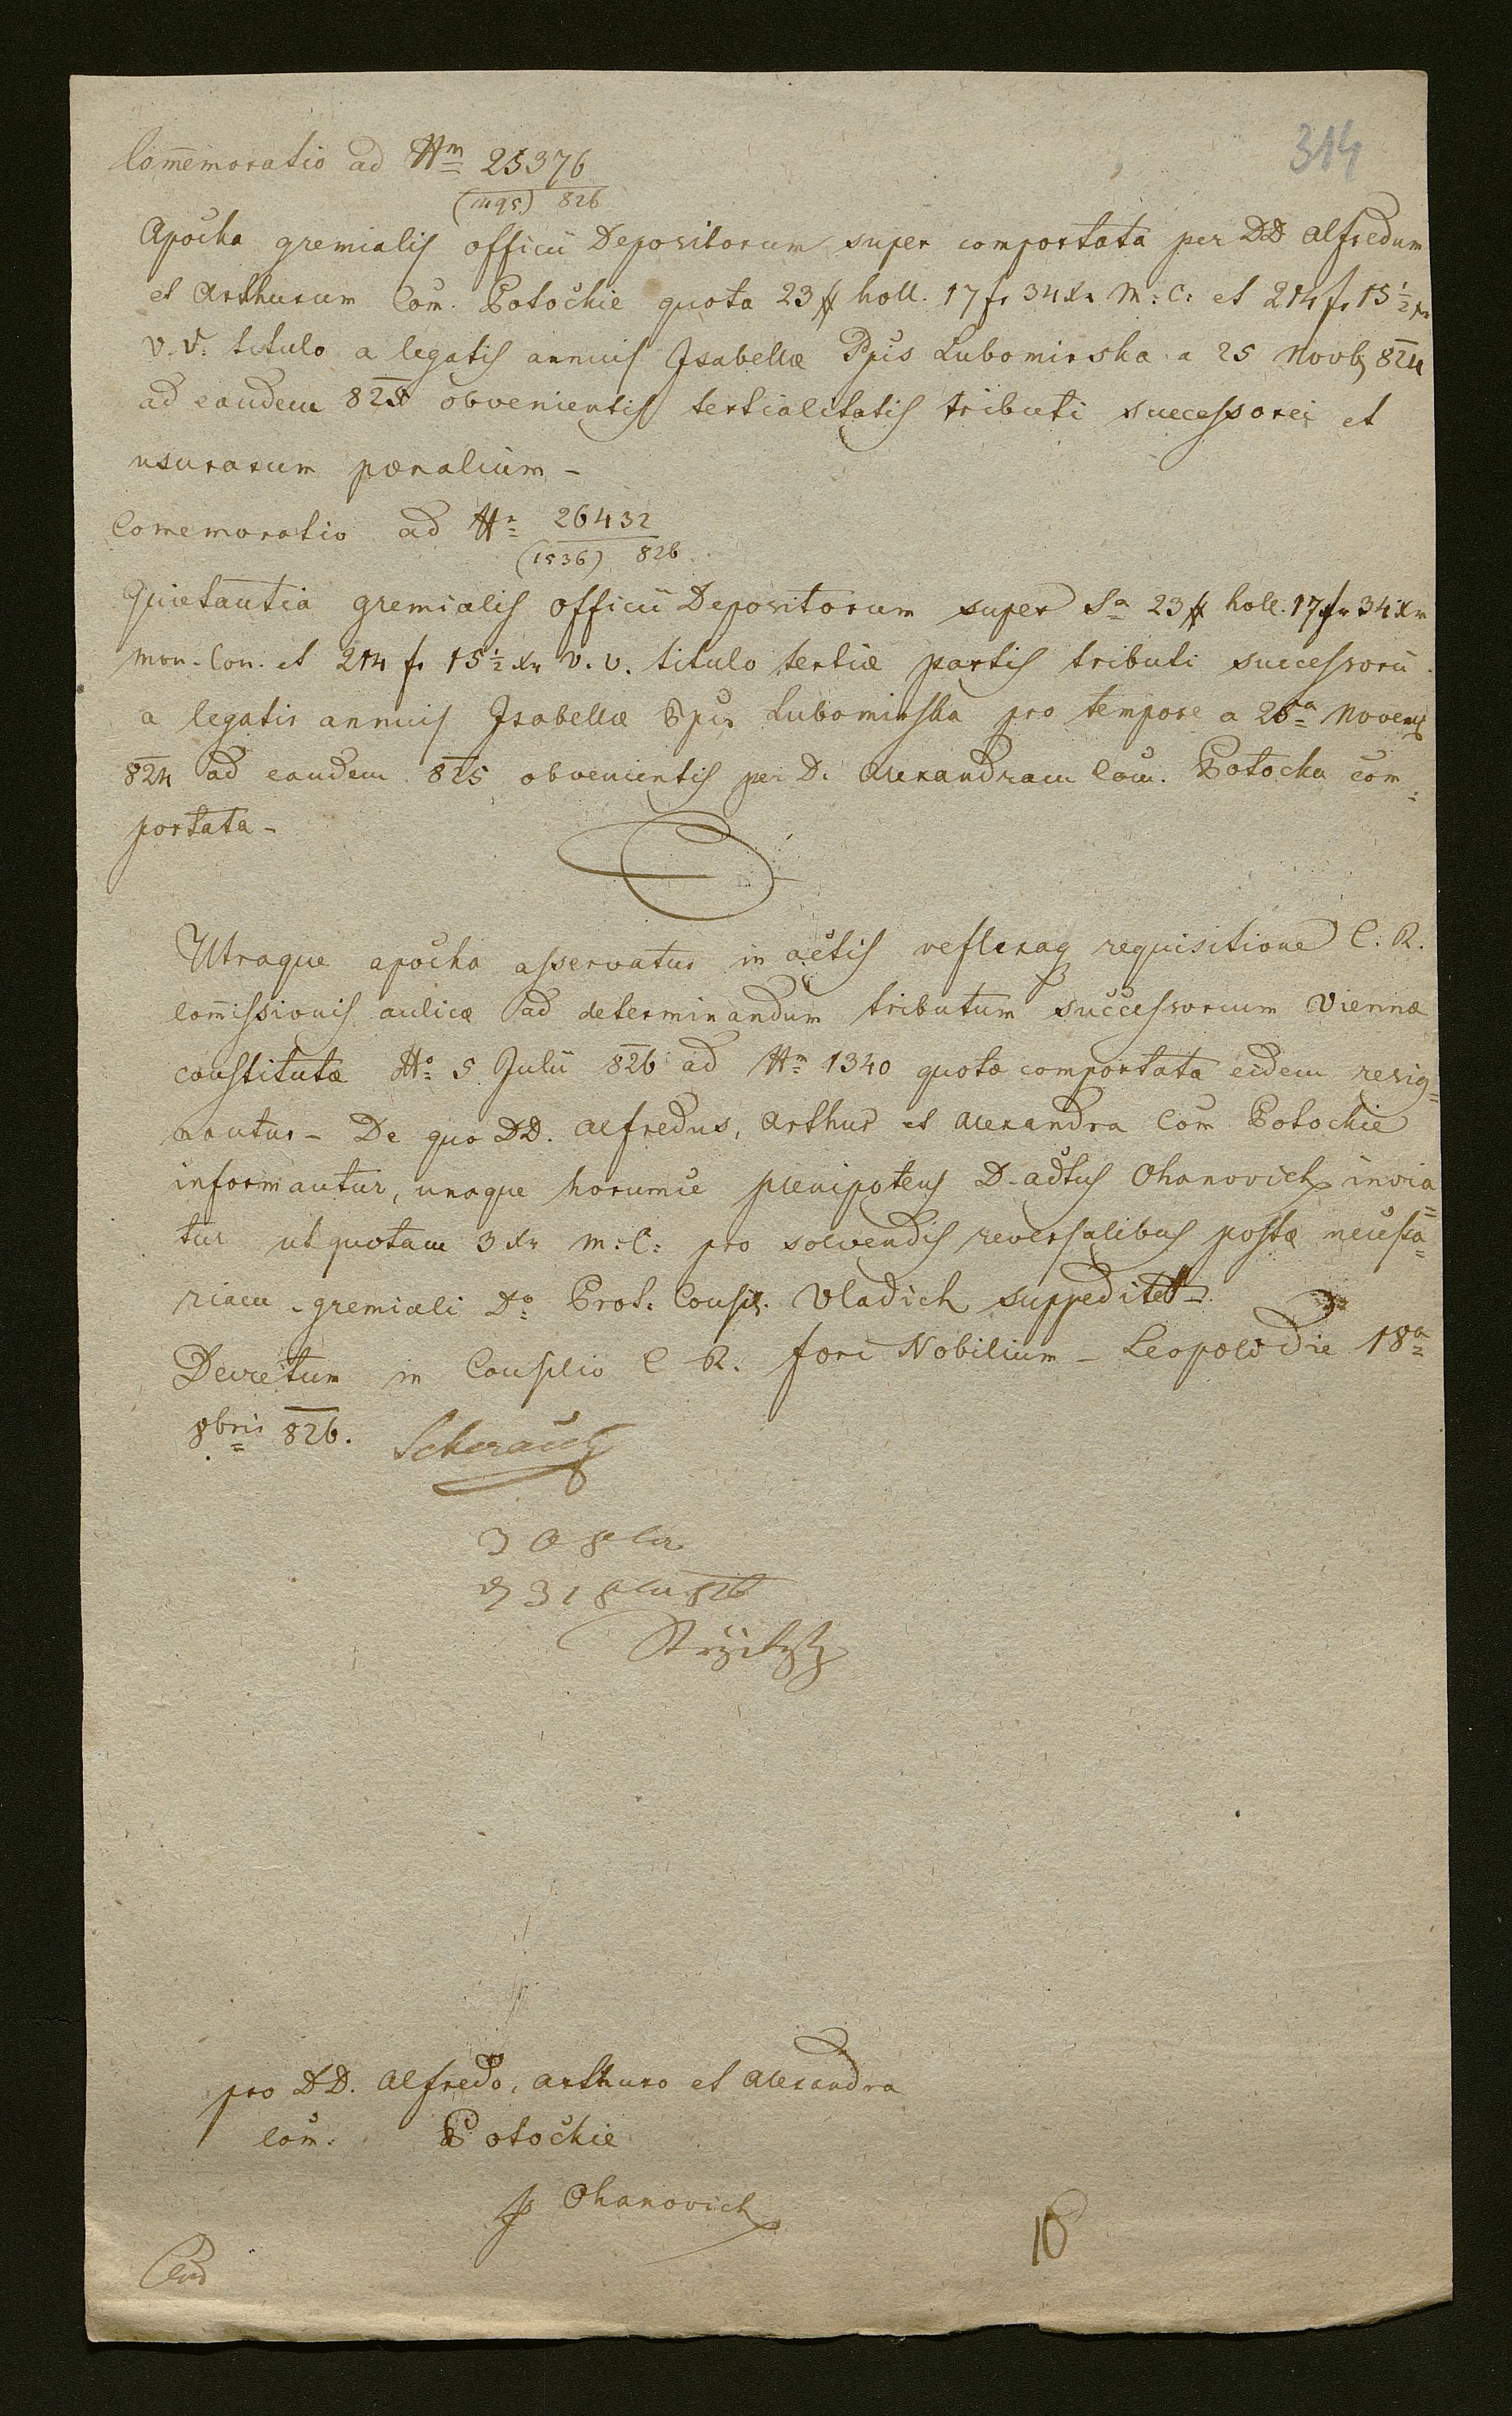 314
Com̅emoratio ad Nm 25376
(1495) 826
Apocha gremialis officii Depositorum super comportata per DD Alfredum
et Arthurum Com. Potockie quota 23 # holl. 17 fr 34 Xr M: C: et 214 fr 15½ xr
V. V. titulo a legatis annuis Isabellæ Ppis Lubomirska a 25 Novb 824
ad eandem 825 obvenientis tertialitatis tributi successorei et
usurarum pœnalium -
Comemoratio ad Nr 26432
(1536) 826
Quietantia gremialis officii Depositorum super Sa 23 # holl. 17 fr 34 Xr
Mon. Con. et 214 fr 15½ Xr V. V. titulo tertiæ partis tributi successorii
a legatis annuis Isabellæ Ppis Lubomirska pro tempore a 25a Novem
824 ad eandem 825 obvenientis per D. Alexandram Com. Potocka com:
portata -
Utraque apocha asservatur in actis reflexaq requisitione C: R.
Com̅issionis aulicæ ad determinandum tributum successorium Viennæ
constitutæ do 5 Julii 826 ad Nm 1340 quotæ comportatæ eidem resig=
nantur - De quo DD. Alfredus, Arthur et Alexandra Com Potockie
informantur, unaque horumce plenipotens D. adtus Ohanovich invia=
tur ut quotam 3 Xr M: C: pro solvendis reversalibus postæ necessa=
riam gremiali Do Prot: Consil. Vladich suppeditet.
Decretum in Consilio C. R. fori Nobilium - Leopoli die 18a
8bris 826. Scherautz
30 8br
31 826
pro DD. Alfredo, Arthuro et Alexandra
Com: Potockie
Ohanovich
10